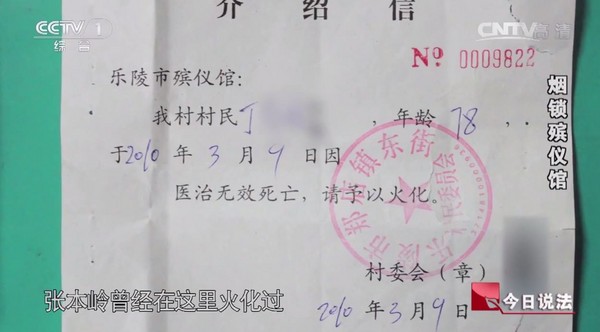 CCTV 1
综合
CNTV 高清
介绍信
No 0009822
乐陵市殡仪馆：
我村村民丁 ，年龄 78 ，
于2010 年 3 月 9 日因
医治无效死亡，请予以火化。
村委会（章）
2010 年 3 月 9 日
乐陵市郑店镇东街
民委员会
烟锁殡仪馆
张本岭曾经在这里火化过
今日说法